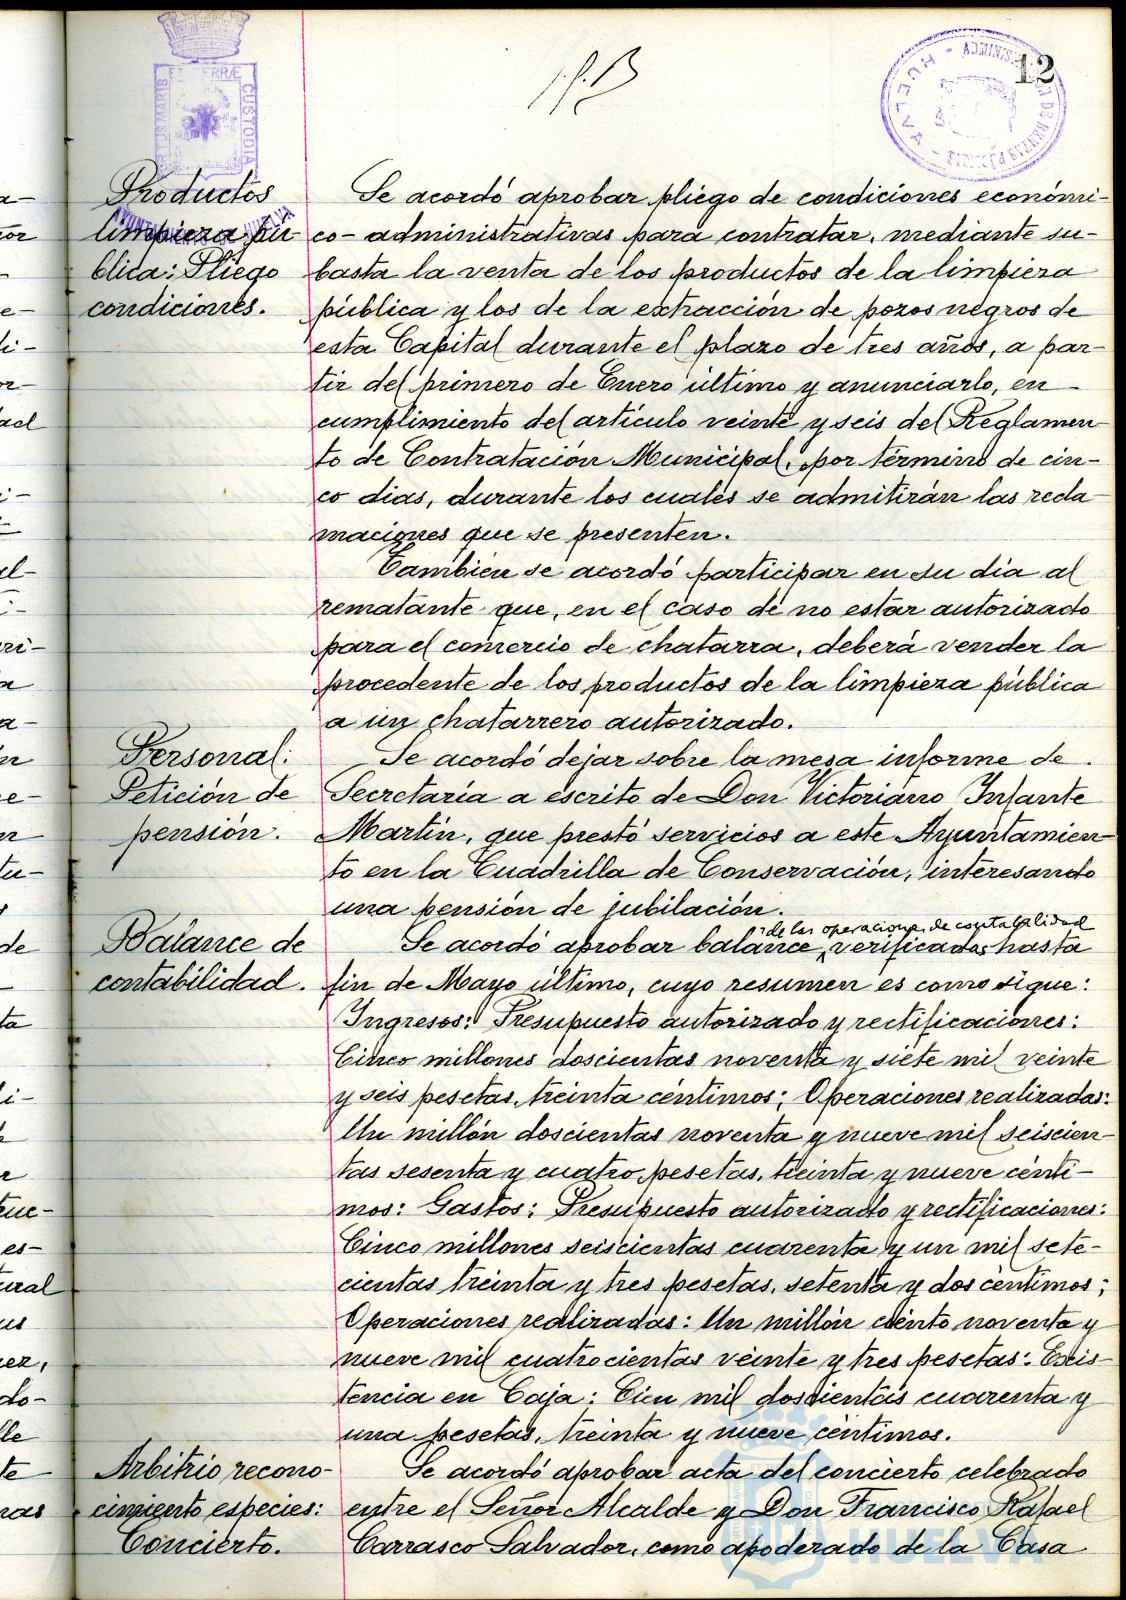 12
Productos
limpieza pú-
blica: Pliego
condiciones.
Se acordó aprobar pliego de condiciones económi-
co-administrativas para contratar, mediante su-
basta la venta de los productos de la limpieza
pública y los de la extracción de pozos negros de
esta Capital durante el plazo de tres años, a par-
tir del primero de Enero último y anunciarlo, en
cumplimiento del artículo veinte y seis del Reglamen-
to de Contratación Municipal, por término de cin-
co dias, durante los cuales se admitirán las recla-
maciones que se presenten.
También se acordó participar en su día al
rematante que, en el caso de no estar autorizado
para el comercio de chatarra, deberá vender la
procedente de los productos de la limpieza pública
a un chatarrero autorizado.
Personal:
Petición de
pensión.
Se acordó dejar sobre la mesa informe de
Secretaría a escrito de Don Victoriano Infante
Martín, que prestó servicios a este Ayuntamien-
to en la Cuadrilla de Conservación, interesando
una pensión de jubilación.
Balance de
contabilidad.
de las operaciones de contabilidad
Se acordó aprobar balance verificadas hasta
fin de Mayo último, cuyo resumen es como sigue:
Ingresos: Presupuesto autorizado y rectificaciones:
Cinco millones doscientas noventa y siete mil veinte
y seis pesetas, treinta céntimos; Operaciones realizadas:
Un millón doscientas noventa y nueve mil seiscien-
tas sesenta y cuatro pesetas, treinta y nueve cénti-
mos: Gastos: Presupuesto autorizado y rectificaciones:
Cinco millones seiscientas cuarenta y un mil sete-
cientas treinta y tres pesetas, setenta y dos céntimos;
Operaciones realizadas: Un millón ciento noventa y
nueve mil cuatrocientas veinte y tres pesetas: Exis-
tencia en Caja: Cien mil doscientas cuarenta y
una pesetas, treinta y nueve céntimos.
Arbitrio recono-
cimiento especies:
Concierto.
Se acordó aprobar acta del concierto celebrado
entre el Señor Alcalde y Don Francisco Rafael
Carrasco Salvador, como apoderado de la Casa
HUELVA